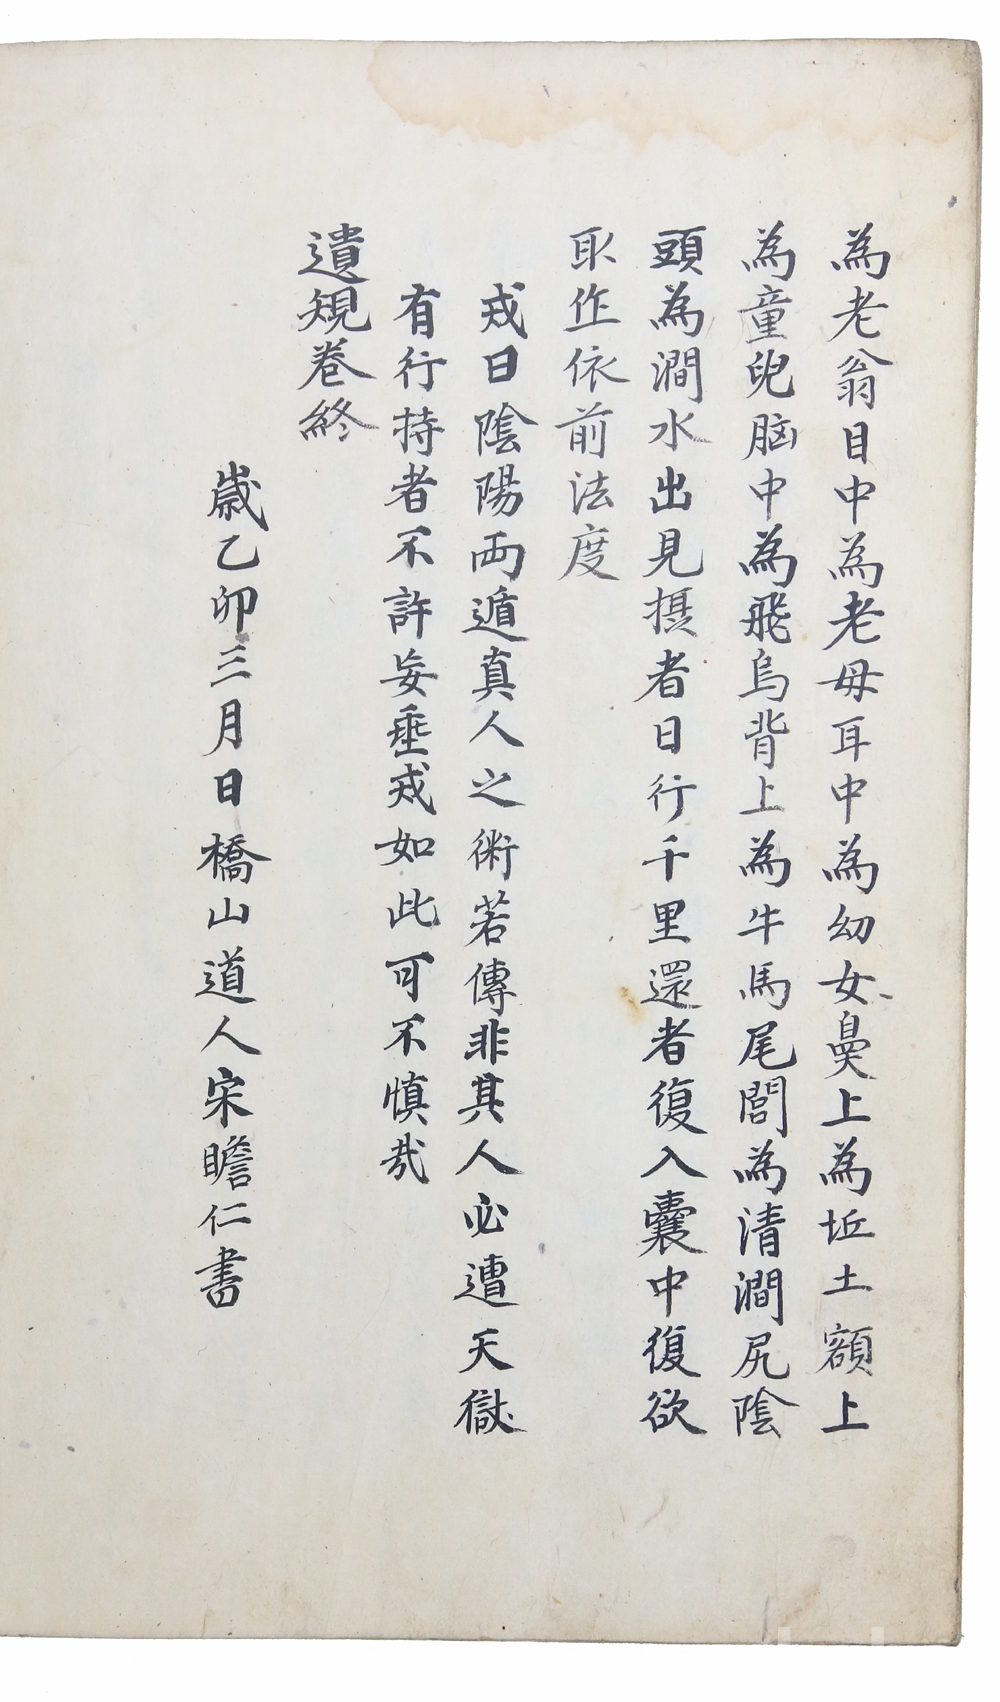 為老翁目中為老母耳中為幼女鼻上為坵土額上
為童兒脳中為飛烏背上為牛馬尾閭為清澗尻陰
頭為澗水出見摂者日行千里還者復入囊中復欲
取作依前法度
戒曰陰陽両遁真人之術若傳非其人必遭天獄
有行持者不許妄垂戒如此可不慎哉
遺規卷終
歲乙卯三月日橋山道人宋瞻仁書